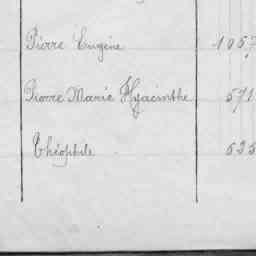 Pierre Eugène 1057
Pierre Marie Hyacinthe 571
Théophile 535